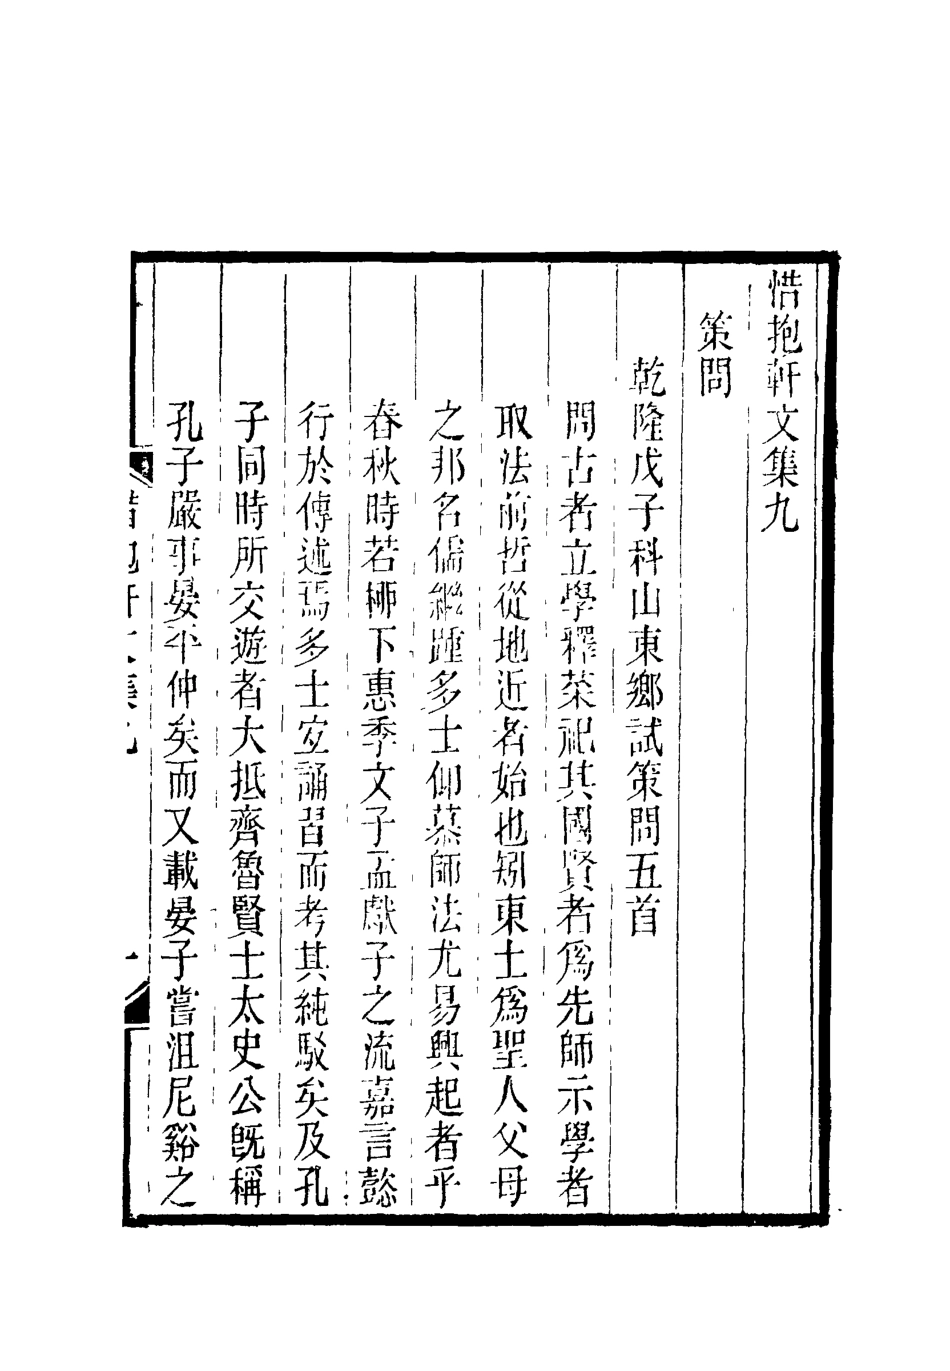 惜抱軒文集九
策問
乾隆戊子科山東鄉試策問五首
問古者立學釋菜祀其國賢者爲先師示學者
取法前哲從地近者始也矧東土爲聖人父母
之邦名儒繼踵多士仰慕師法尤易興起者乎
春秋時若柳下惠季文子孟獻子之流嘉言懿
行於傳述焉多士宜誦習而考其純駁矣及孔
子同時所交遊者大抵齊魯賢士太史公旣稱
孔子嚴事晏平仲矣而又載晏子嘗沮尼谿之